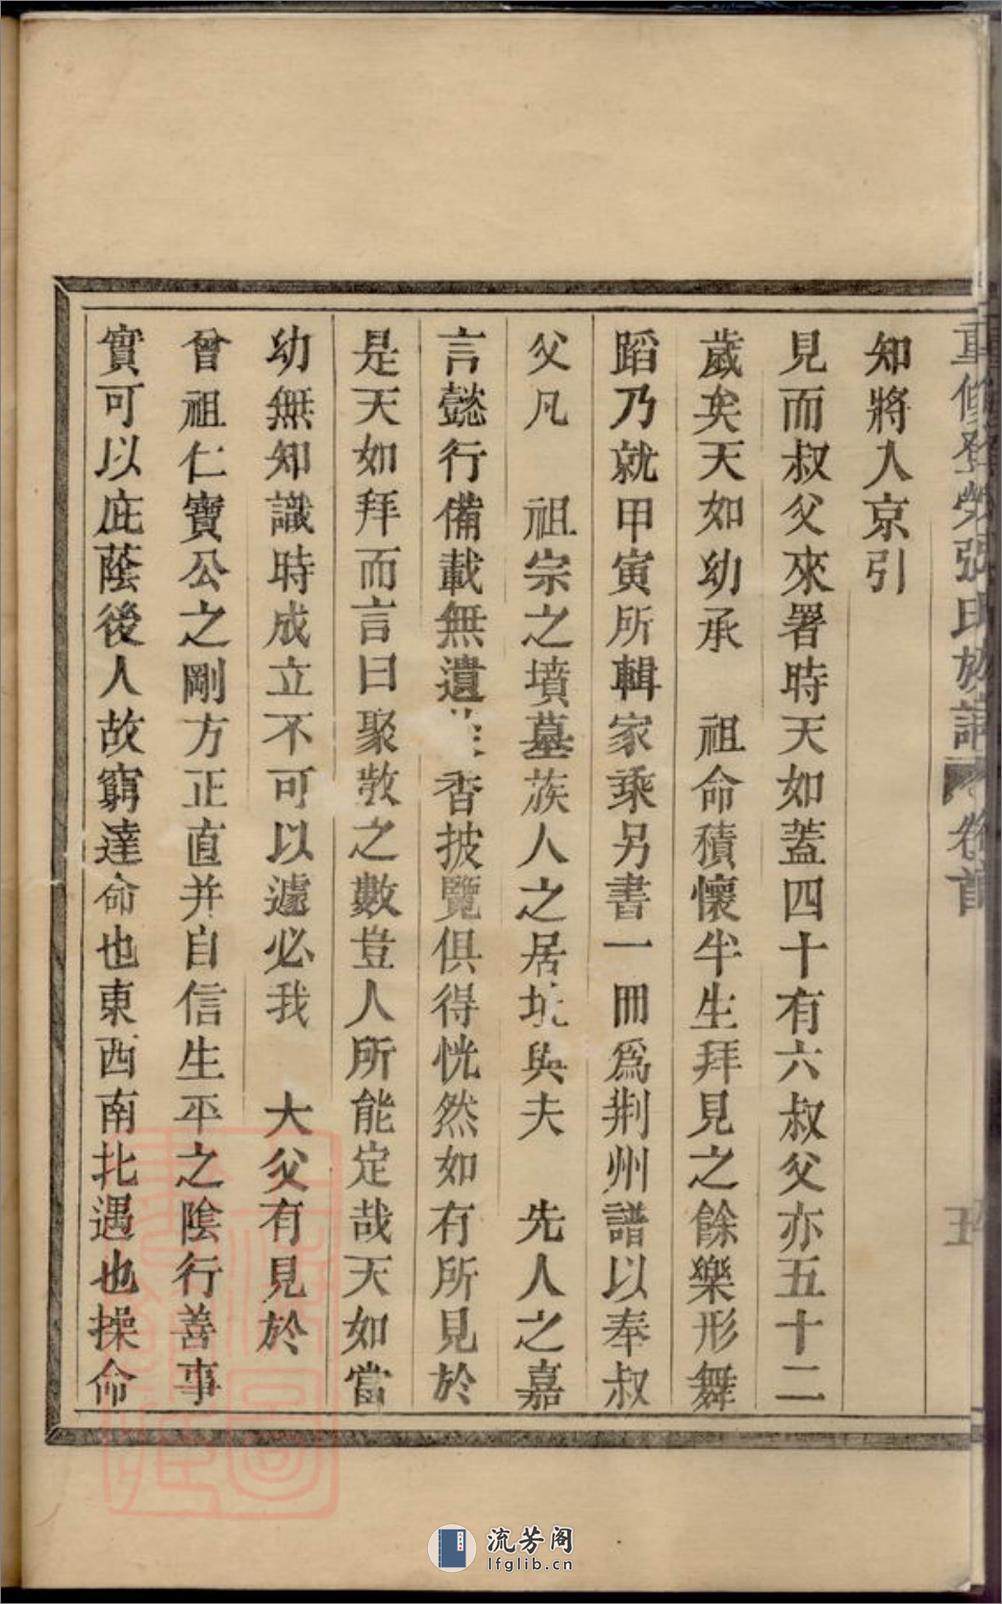 重修登榮張氏族譜 卷首 五
知將入京引
見而叔父來署時天如蓋四十有六叔父亦五十二
歲矣天如幼承 祖命積懷半生拜見之餘樂形舞
蹈乃就甲寅所輯家乘另書一冊爲荆州譜以奉叔
父凡 祖宗之墳墓族人之居址與夫 先人之嘉
言懿行備載無遺 香披覽俱得恍然如有所見於
是天如拜而言曰聚散之數豈人所能定哉天如當
幼無知識時成立不可以遽必我 大父有見於
曾祖仁寶公之剛方正直并自信生平之陰行善事
實可以庇蔭後人故窮達命也東西南北遇也操命
流芳阁
lfglib.cn